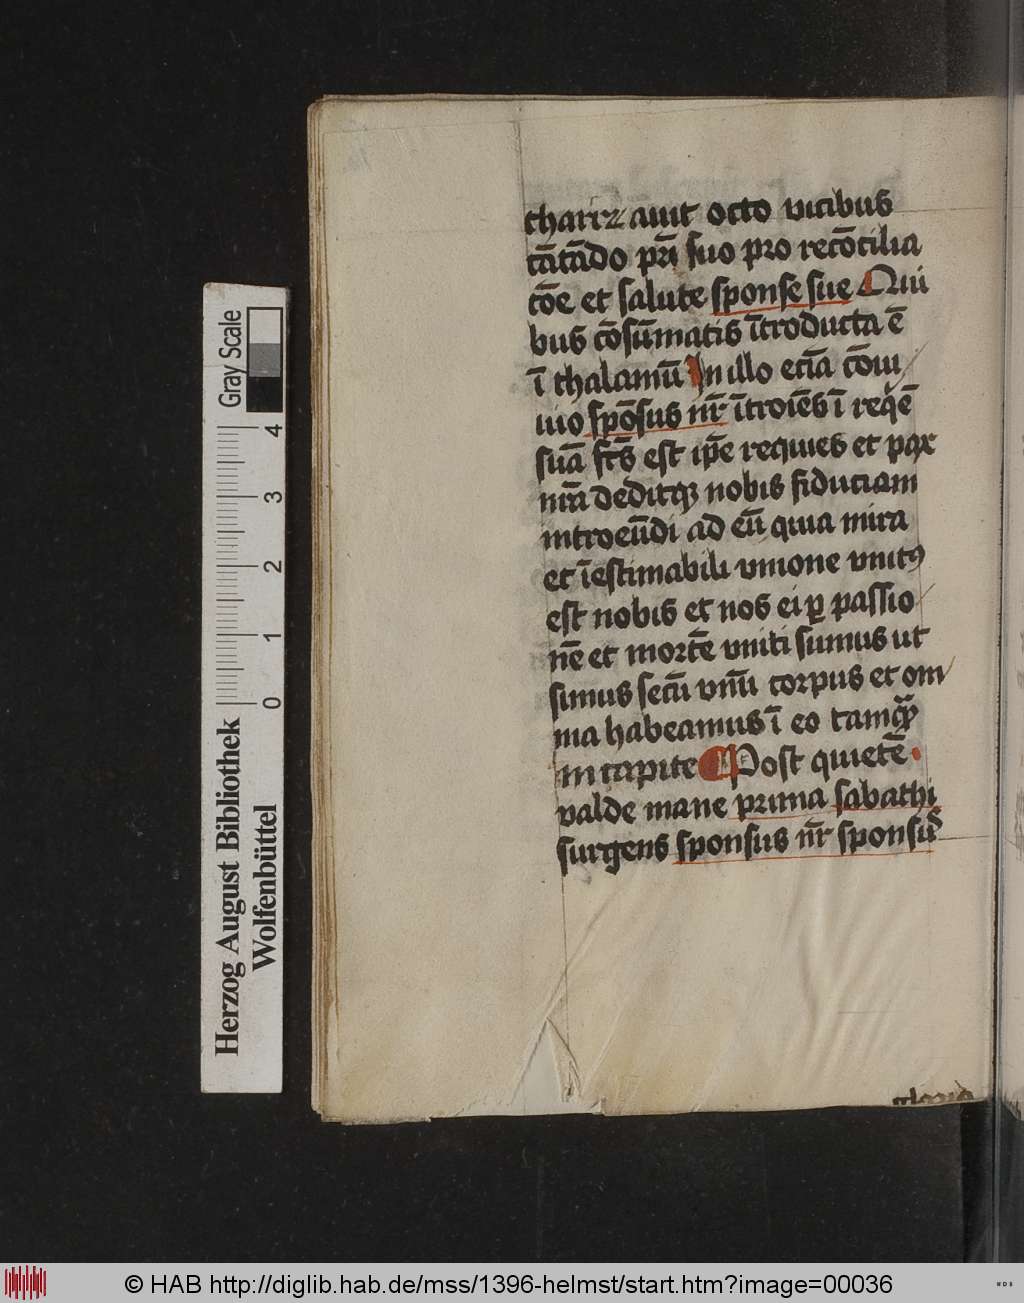 tharizauit octo vicibus
cātādo pr̄i suo pro recōcilia
cōe et salute sponse sue Qui
bus cōsūmatis ītroducta ē
ī thalamū In illo eciā cōui
uio spōsus nr̄ ītroiēs ī reqͥē
suā fcs̄ est ip̄e requies et pax
nr̄a deditqꝫ nobis fiduciam
introeūdi ad eū quia mira
et īestimabili vnione vnitꝰ
est nobis et nos ei ꝑ passio
nē et mortē vniti sumus ut
simus secū vnū corpus et om
nia habeamus ī eo tamqᷓ
in capite Post quietē
valde mane prima sabathi
surgens sponsus nr̄ sponsūs
Herzog August Bibliothek
Wolfenbüttel
Gray Scale
0 1 2 3 4
© HAB http://diglib.hab.de/mss/1396-helmst/start.htm?image=00036
WDB